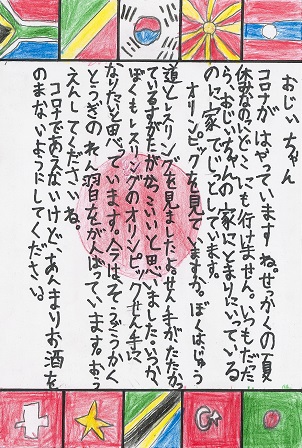 おじいちゃん
コロナがはやっていますね。せっかくの夏
休みなのにどこにも行けません。いつもだった
ら、おじいちゃんの家にとまりにいっている
のに家でじっとしています。
オリンピックを見ていますか。ぼくはじゅう
道とレスリングを見ました。せん手がたたかっ
ているすがたがかっこいいと思いました。いつか、
ぼくもレスリングのオリンピックせん手に
なりたいと思っています。今はそうごうかく
とうぎのれん習をがんばっています。おう
えんしてくださいね。
コロナであえないけど、あんまりお酒を
のまないようにしてください。